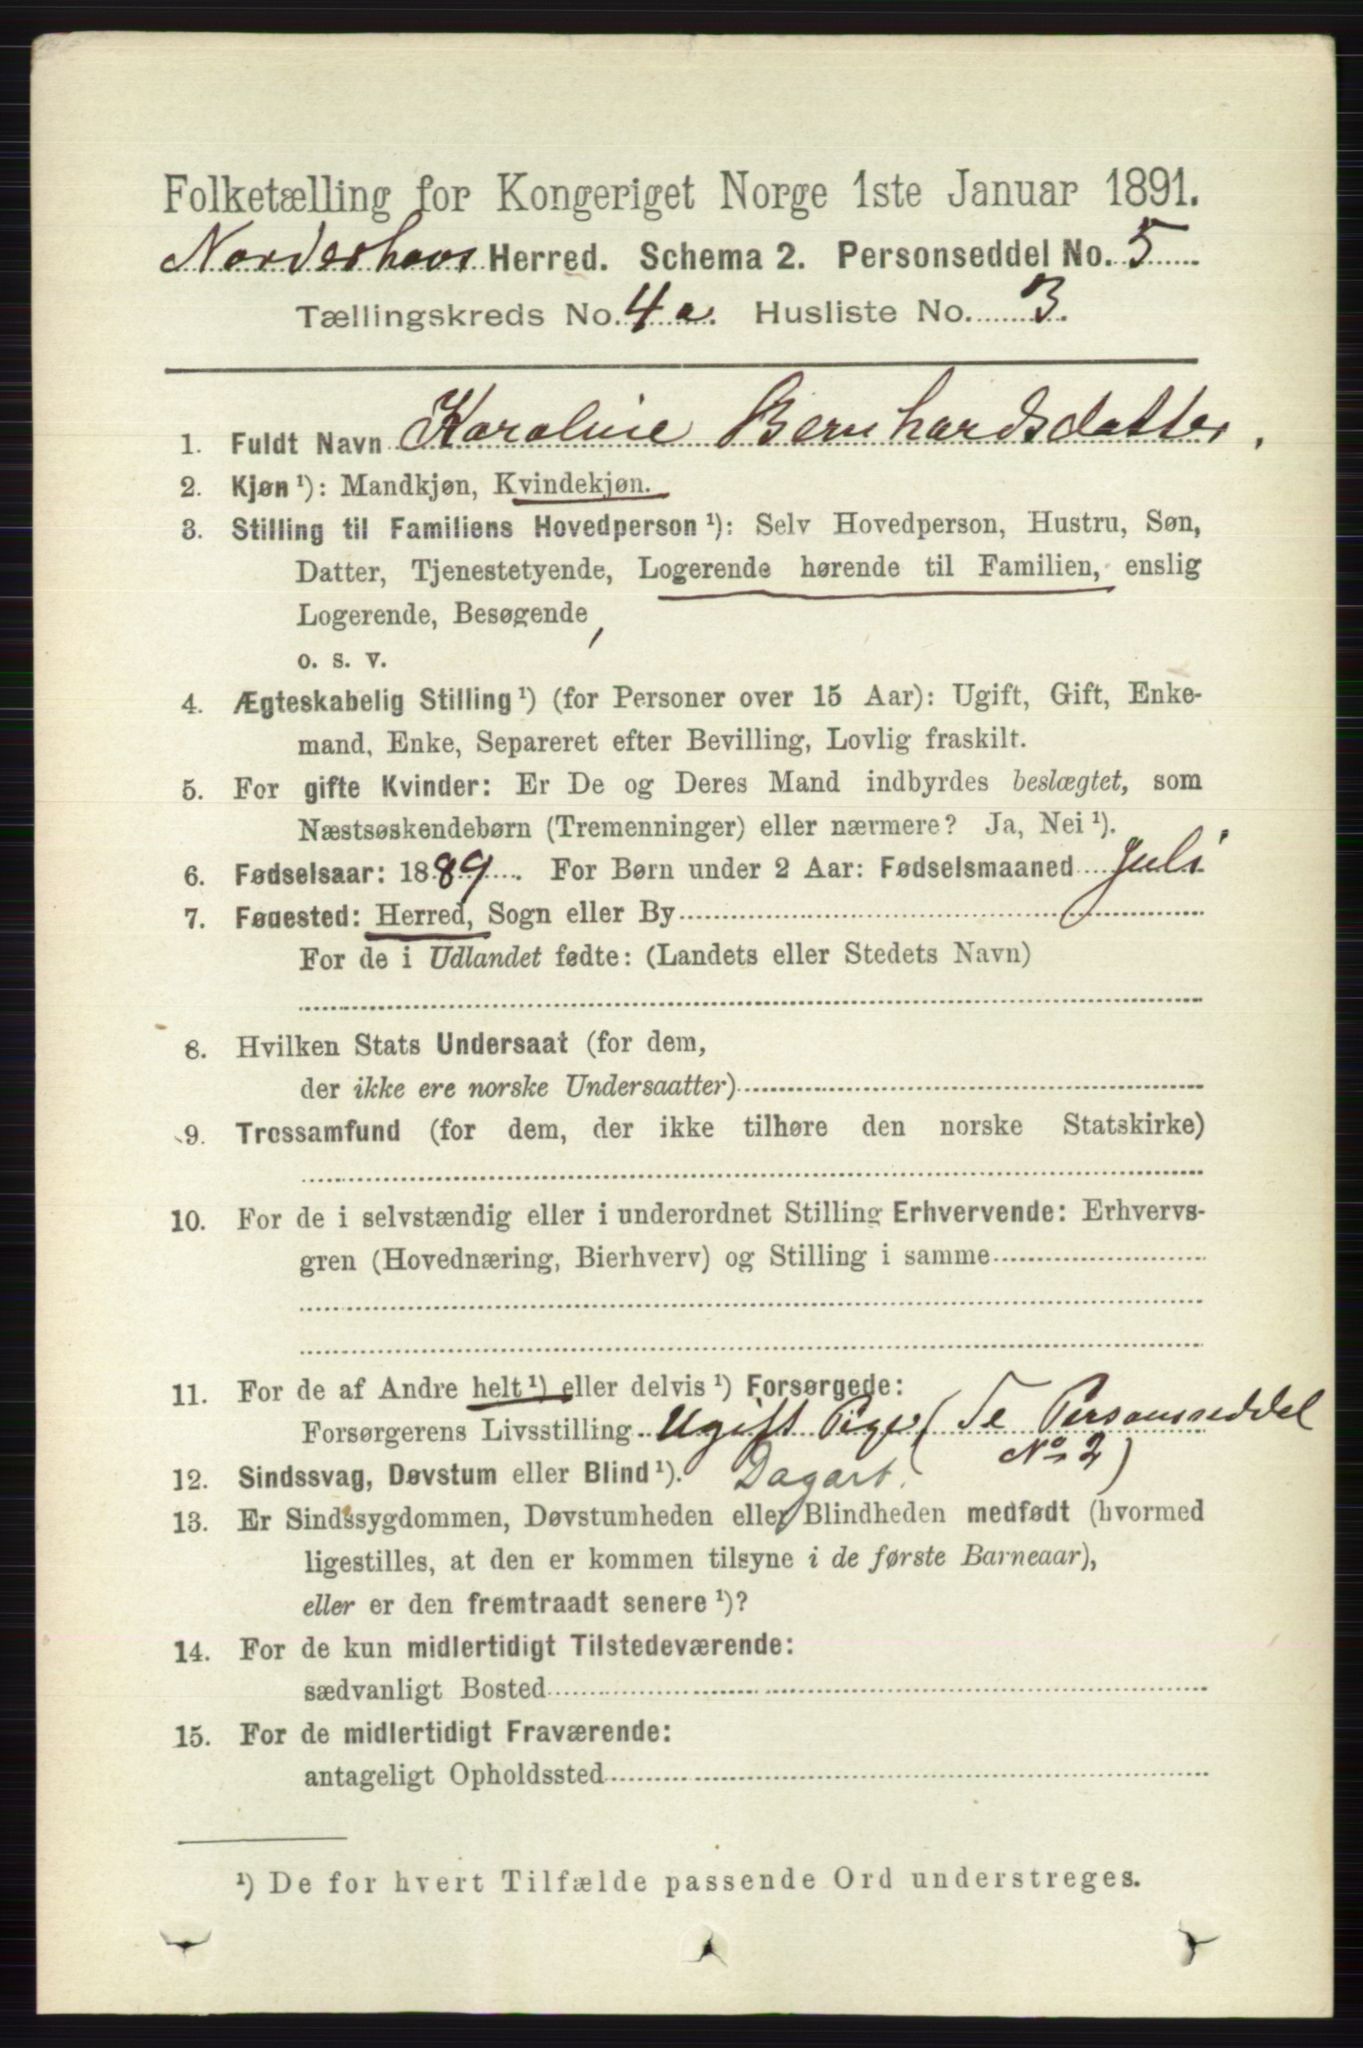 Folketælling for Kongeriget Norge 1ste Januar 1891.
Norderhovs Herred. Schema 2. Personseddel No. 5
Tællingskreds No. 4a. Husliste No. 3.
1. Fuldt Navn Karoline Bernhardsdatter.
2. Kjøn ¹): Mandkjøn, Kvindekjøn.
3. Stilling til Familiens Hovedperson ¹): Selv Hovedperson, Hustru, Søn,
Datter, Tjenestetyende, Logerende hørende til Familien, enslig
Logerende, Besøgende,
o. s. v.
4. Ægteskabelig Stilling ¹) (for Personer over 15 Aar): Ugift, Gift, Enke-
mand, Enke, Separeret efter Bevilling, Lovlig fraskilt.
5. For gifte Kvinder: Er De og Deres Mand indbyrdes beslægtet, som
Næstsøskendebørn (Tremenninger) eller nærmere? Ja, Nei ¹).
6. Fødselsaar: 1889. For Børn under 2 Aar: Fødselsmaaned Juli
7. Fødested: Herred, Sogn eller By
For de i Udlandet fødte: (Landets eller Stedets Navn)
8. Hvilken Stats Undersaat (for dem,
der ikke ere norske Undersaatter)
9. Trossamfund (for dem, der ikke tilhøre den norske Statskirke)
10. For de i selvstændig eller i underordnet Stilling Erhvervende: Erhvervs-
gren (Hovednæring, Bierhverv) og Stilling i samme
11. For de af Andre helt ¹) eller delvis ¹) Forsørgede:
Forsørgerens Livsstilling Ugift Pige (Se Personseddel
No 2)
12. Sindssvag, Døvstum eller Blind ¹). Dagarb.
13. Er Sindssygdommen, Døvstumheden eller Blindheden medfødt (hvormed
ligestilles, at den er kommen tilsyne i de første Barneaar),
eller er den fremtraadt senere ¹)?
14. For de kun midlertidigt Tilstedeværende:
sædvanligt Bosted
15. For de midlertidigt Fraværende:
antageligt Opholdssted
¹) De for hvert Tilfælde passende Ord understreges.